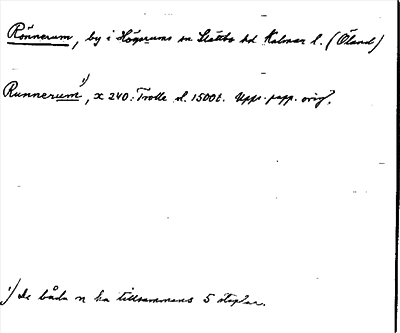 Rönnerum, by i Högsrums sn Slättbo hd Kalmar l. (Öland)
Runnerum¹⁾, x 240: Trolle d. 1500t. Upps. papp. orig.
¹⁾ De båda n ha tillsammans 5 staplar.